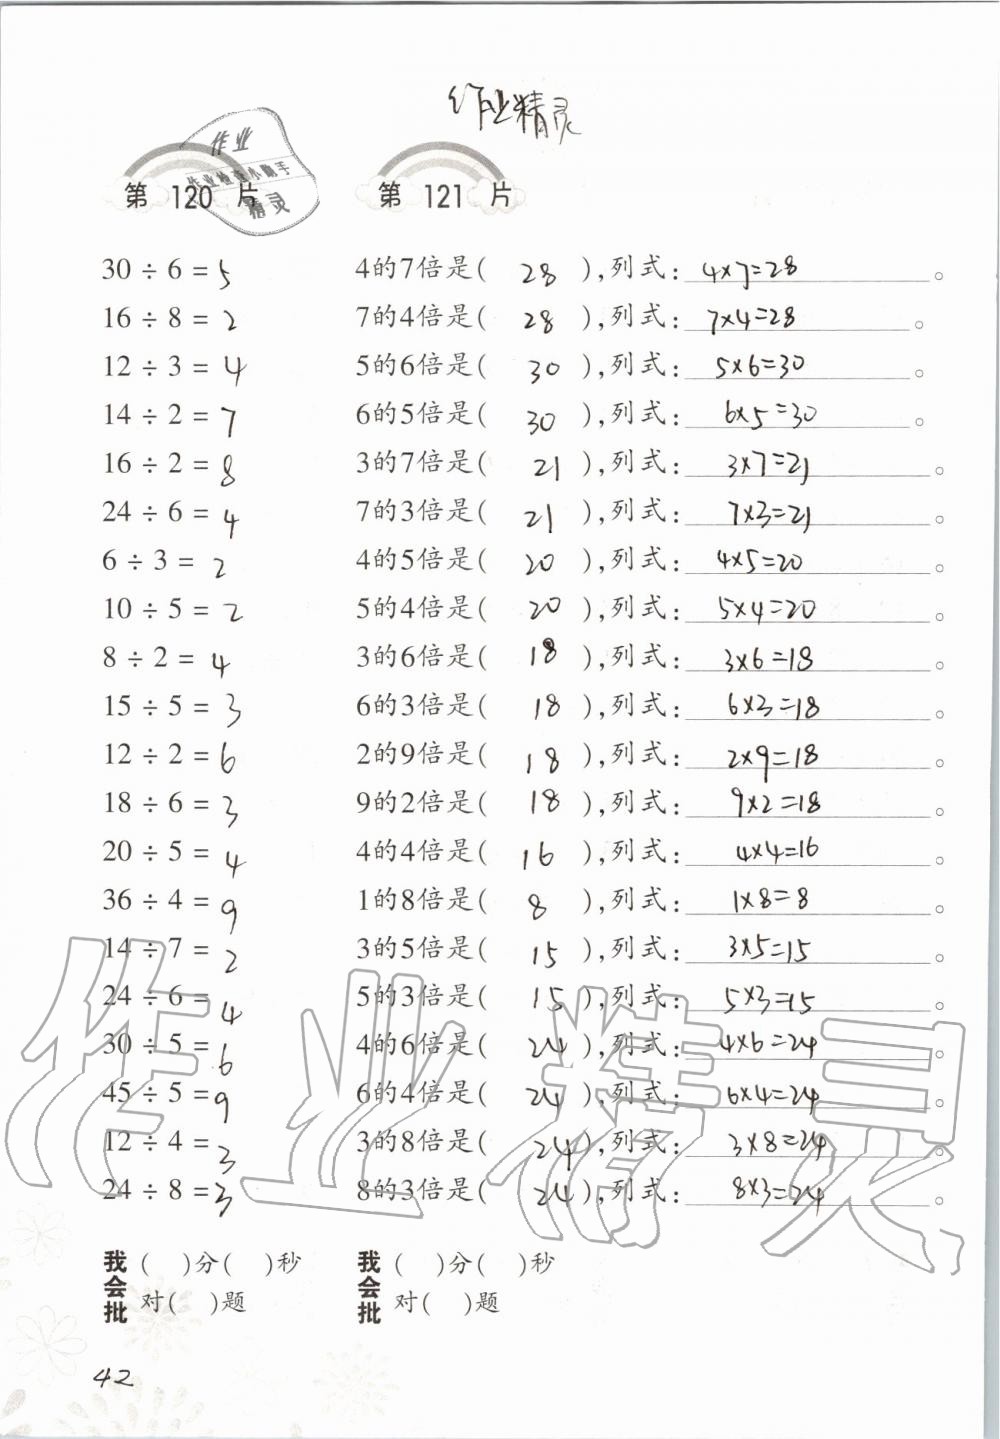 作业精灵
作业
作业检查小助手
精灵
第 120 片
30 ÷ 6 = 5
16 ÷ 8 = 2
12 ÷ 3 = 4
14 ÷ 2 = 7
16 ÷ 2 = 8
24 ÷ 6 = 4
6 ÷ 3 = 2
10 ÷ 5 = 2
8 ÷ 2 = 4
15 ÷ 5 = 3
12 ÷ 2 = 6
18 ÷ 6 = 3
20 ÷ 5 = 4
36 ÷ 4 = 9
14 ÷ 7 = 2
24 ÷ 6 = 4
30 ÷ 5 = 6
45 ÷ 5 = 9
12 ÷ 4 = 3
24 ÷ 8 = 3
我会批
( )分( )秒
对( )题
第 121 片
4的7倍是( 28 ),列式: 4×7=28 。
7的4倍是( 28 ),列式: 7×4=28 。
5的6倍是( 30 ),列式: 5×6=30 。
6的5倍是( 30 ),列式: 6×5=30 。
3的7倍是( 21 ),列式: 3×7=21 。
7的3倍是( 21 ),列式: 7×3=21 。
4的5倍是( 20 ),列式: 4×5=20 。
5的4倍是( 20 ),列式: 5×4=20 。
3的6倍是( 18 ),列式: 3×6=18 。
6的3倍是( 18 ),列式: 6×3=18 。
2的9倍是( 18 ),列式: 2×9=18 。
9的2倍是( 18 ),列式: 9×2=18 。
4的4倍是( 16 ),列式: 4×4=16 。
1的8倍是( 8 ),列式: 1×8=8 。
3的5倍是( 15 ),列式: 3×5=15 。
5的3倍是( 15 ),列式: 5×3=15 。
4的6倍是( 24 ),列式: 4×6=24 。
6的4倍是( 24 ),列式: 6×4=24 。
3的8倍是( 24 ),列式: 3×8=24 。
8的3倍是( 24 ),列式: 8×3=24 。
我会批
( )分( )秒
对( )题
作业精灵
42